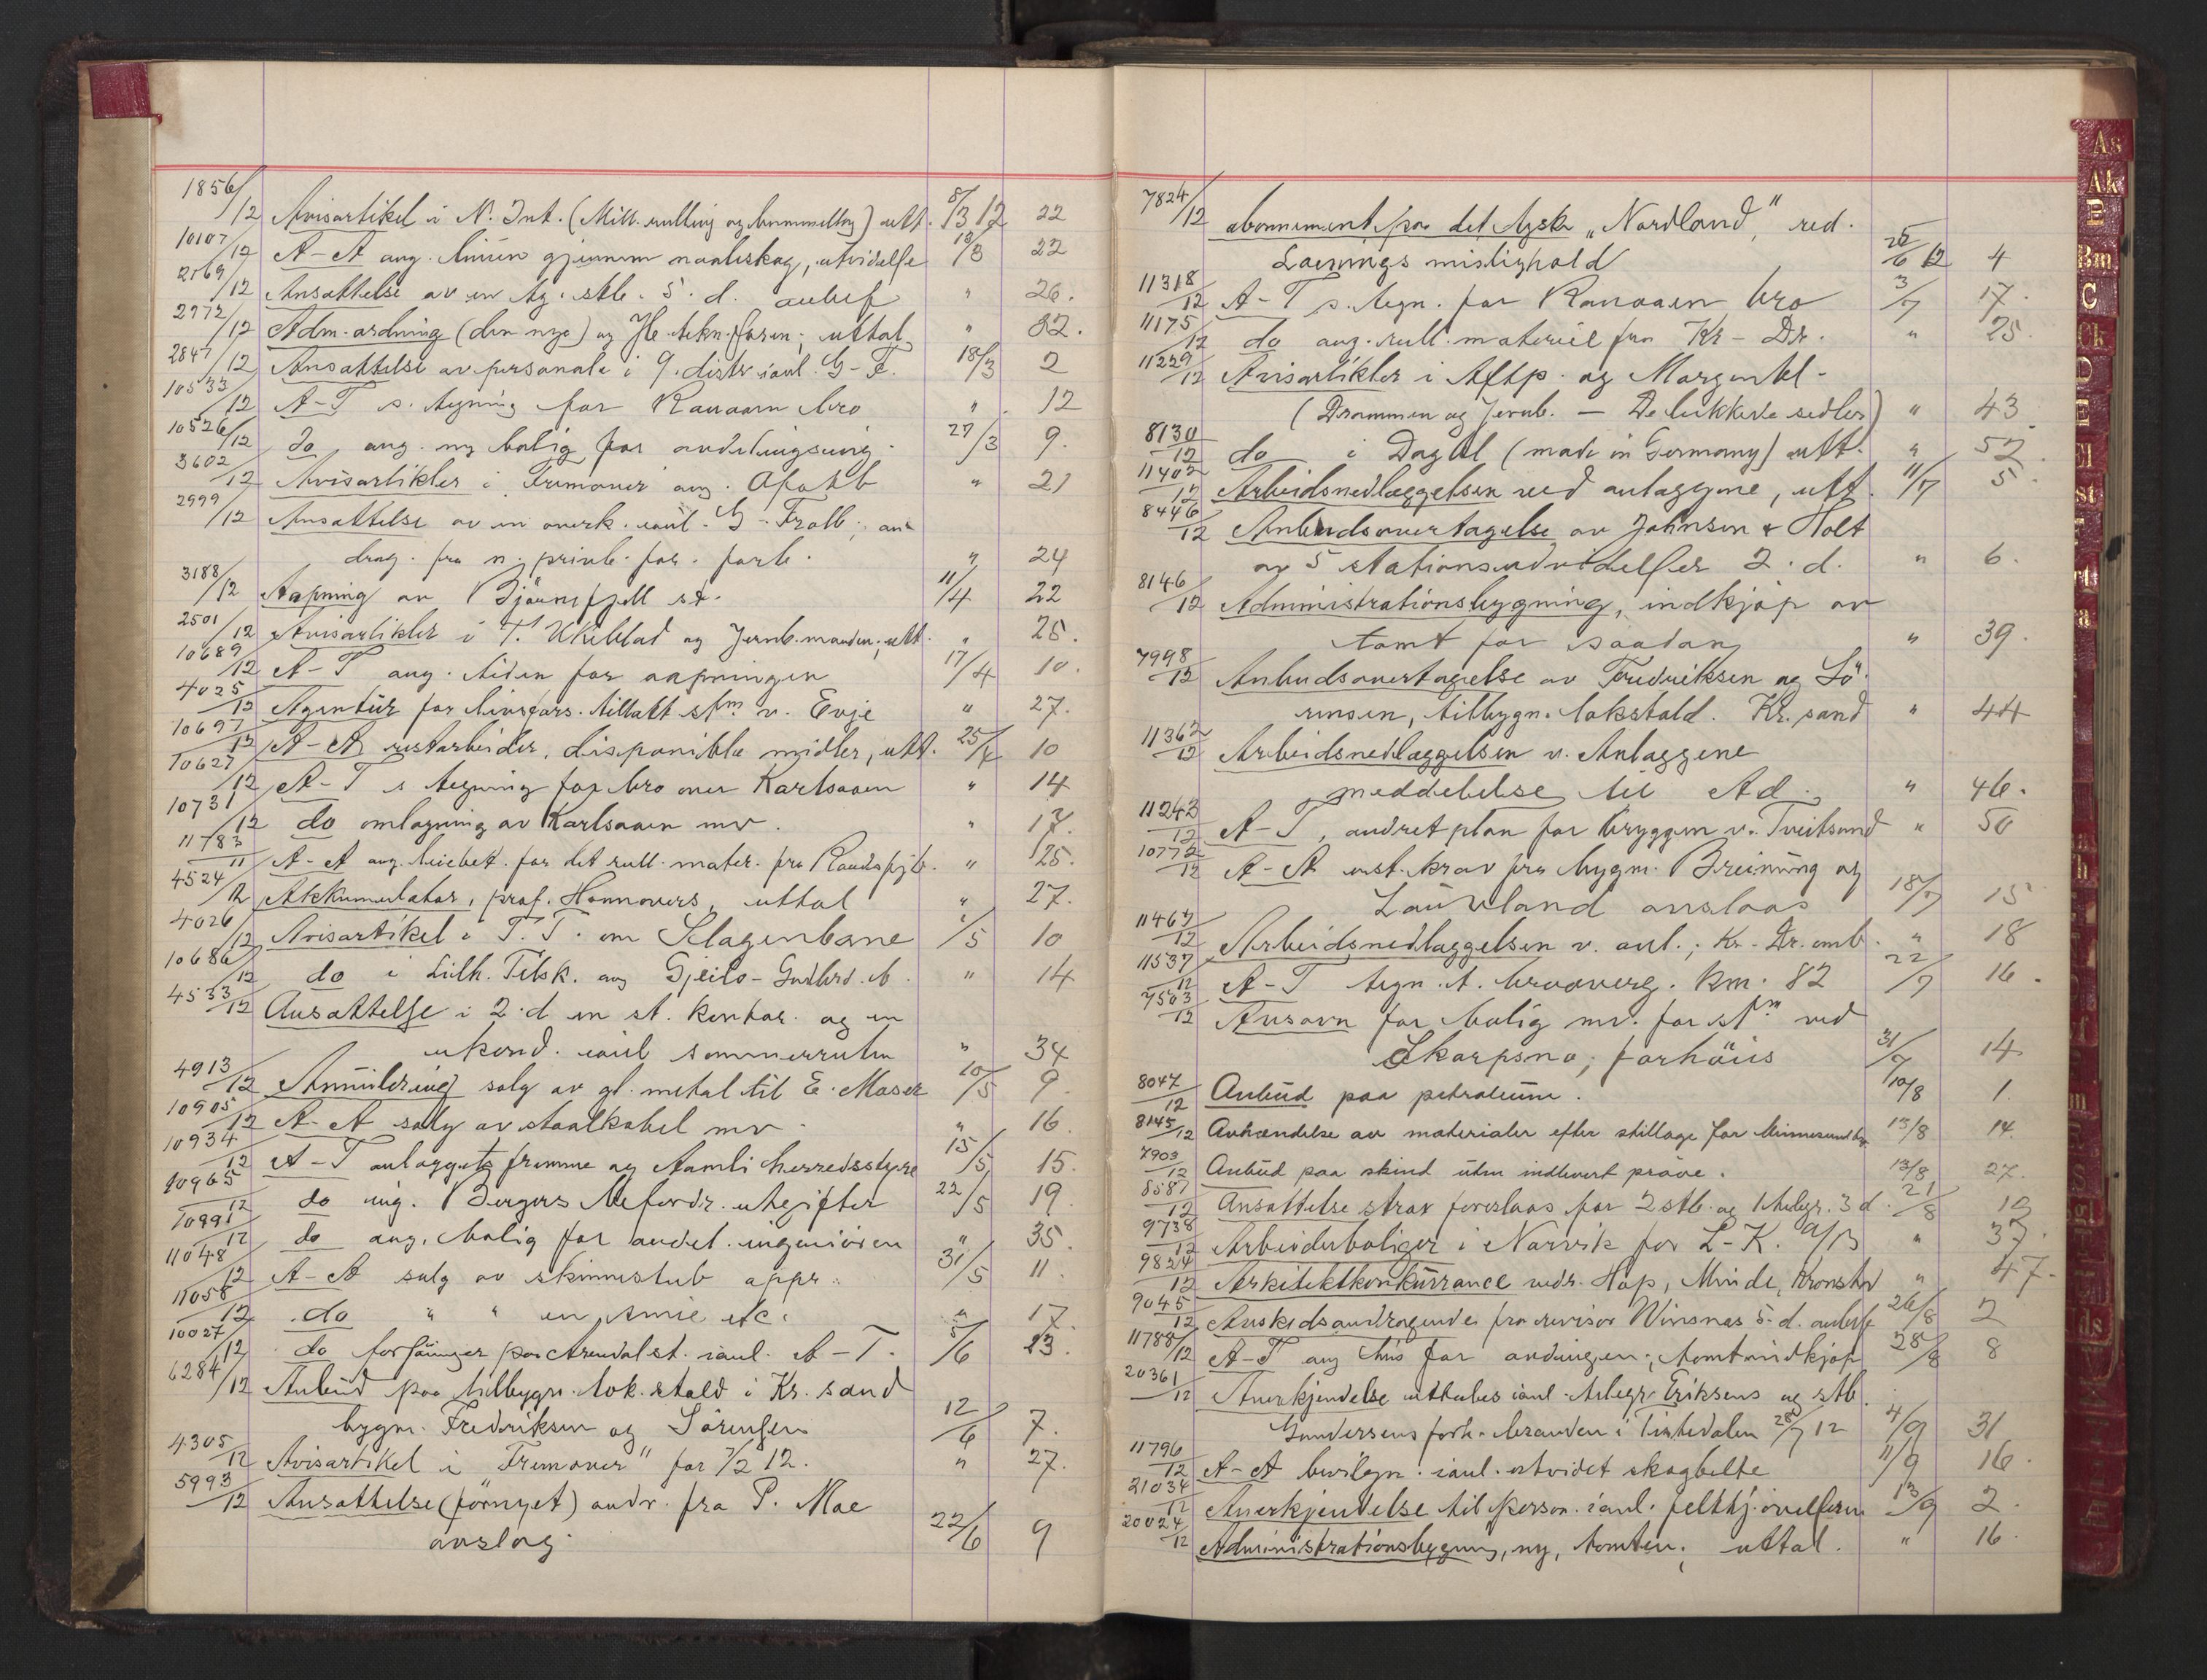 1856/12 Avisartikel i N. Int. (Mill. rulling og bummelthog) utt. 8/3 12. 22
10107/12 A-A ang. linien gjennem naaleskog, utvidelse 18/3 22
2169/12 Ansættelse av en tg. stb. 5. d. anbef " 26.
2772/12 Adm. ordning (den nye) og tekn. foren; uttal. " 32.
2847/12 Ansættelse av personale i 9. distr. ianl. G-F. 18/3 2
10533/12 A-T s. tegning for Rauaaen bro " 12
10526/12 do ang. ny bolig for avdelingsing. 27/3 9.
3602/12 Avisartikler i Fremover ang. Ofotb " 21
2999/12 Ansættelse av en overk. ianl. G-Fralb; an-
drag. fra n. privb. for. forb. " 24
3188/12 Aapning av Bjørnfjell st. 11/4 22
2501/12 Avisartikler i T. Ukeblad og Jernb.manden; utt. " 25.
10689/12 A-T ang. tiden for aapningen 17/4 10.
4025/12 Agentur for livsfors. tillatt stm v. Evje " 27.
10697/12 A-A restarbeider, disponible midler, utt. 25/4 10
10627/12 A-T s tegning for bro over Karlsaaen " 14
10731/12 do omlægning av Karlsaaen mv. " 17.
11783/11 A-A ang. leiebet. for det rull. mater. fra Randsfjb. " 25.
4524/12 Akkumulator, prof. Hannovers, uttal " 27.
4026/12 Avisartikel i T. T. om Slagenbane 2/5 10
10686/12 do i Lilh. Tilsk. ang Gjeilo-Gudbrd. b. " 14
4533/12 Ansættelse i 2. d en st. kontor. og en
ukond. ianl sommerrutn " 34
4913/12 Anmeldning salg av gl. metal til E. Moser 10/5 9.
10905/12 A-A salg av staalkabel mv. " 16.
10934/12 A-T anlæggets fremme og Aamli herredsstyre 15/5 15.
10965/12 do ing. Bergers befordr. utgifter 22/5 19.
10991/12 do ang. bolig for avdel. ingeniören " 35.
11048/12 A-A salg av skinnestub appr. 31/5 11.
11058/12 do " " en smie etc. " 17.
10027/12 do paa Arendal st. ianl. A-T. 5/6 23.
6284/12 Anbud paa tilbygn. lok. stald i Kr. sand
bygm. Fredriksen og Sörensen 12/6 7.
4305/12 Avisartikel i "Fremover" for 7/2 12. " 27.
5993/12 Ansættelse (förnyet) andr. fra P. Moe
avslag. 22/6 9
7824/12 abonnement paa det tyske „Nordland", red.
Loennings mislighold 26/6 12 4
11318/12 A-T s. tegn. for Rauaaen bro 3/7 17.
11175/12 do ang. rull. materiel fra Kr-Dr. " 25.
11229/12 Avisartikler i Aftp. og Morgenbl.
(Drammen og Jernb. - De lukkede sedler) " 43
8130/12 do i Dagbl (made in Germany) utt. " 52.
11402/12 Arbeidsnedlæggelsen ved anlæggene, utt. 11/7 5.
8446/12 Anbudsovertagelse av Johnsen & Holt
av 5 stationsudvidelser 2. d. " 6.
8146/12 Administrationsbygning, indkjøp av
tomt for saadan " 39.
7998/12 Anbudsovertagelse av Fredriksen og Sö-
rensen, tilbygn. lokstald. Kr. sand " 44
11362/12 Arbeidsnedlæggelsen v. Anlæggene
meddelelse til Ad. " 46.
11243/12 A-T, ændret plan for bryggen v. Tveitsund " 50
10772/12 A-A erst. krav fra bygm. Breining og
Lauvland avslaaes 18/7 15
11467/12 Arbeidsnedlæggelsen v. anl.; Kr-Dr. omb. " 18
11537/12 A-T tegn. t. km. 82 22/7 16.
7503/12 Ansøgn for bolig mv. for stm ved
Skarpsno; forhöies 31/7 14
8047/12 Anbud paa petroleum. 10/8 1.
8145/12 Avhændelse av materialer efter stillage for Minnesund bro 13/8 14.
7903/12 Anbud paa skind uten indlevert pröve. 13/8 27.
8587/12 Ansættelse strax foreslaaes for 2 stb. og 1 telegr. 3 d. 21/8 12
9738/12 Arbeiderboliger i Narvik for L-K. A/B " 37.
9824/12 Arkitektkonkurrance vedr. Hop, Minde, Kronstad " 47.
9045/12 Avskedsandragende fra revisor Winsnes 5. d. anbefd 26/8 2
11788/12 A-T ang hus for avdelingen; tomtindkjøp 28/8 8
20361/12 Anerkjendelse uttales ianl. telegr. Eriksens og stb.
Gundersens forh. branden i Tistedalen 28/7 12 4/9 31
11796/12 A-A bevilgn. ianl. utvidet skogbelte 11/9 16.
21034/12 Anerkjendelse til person. ianl. feltkj. övelserne 13/9 2.
20024/12 Administrationsbygning, ny, tomten; uttal. " 16.
As
Ak
B
Bm
C
Ck
D
E
El